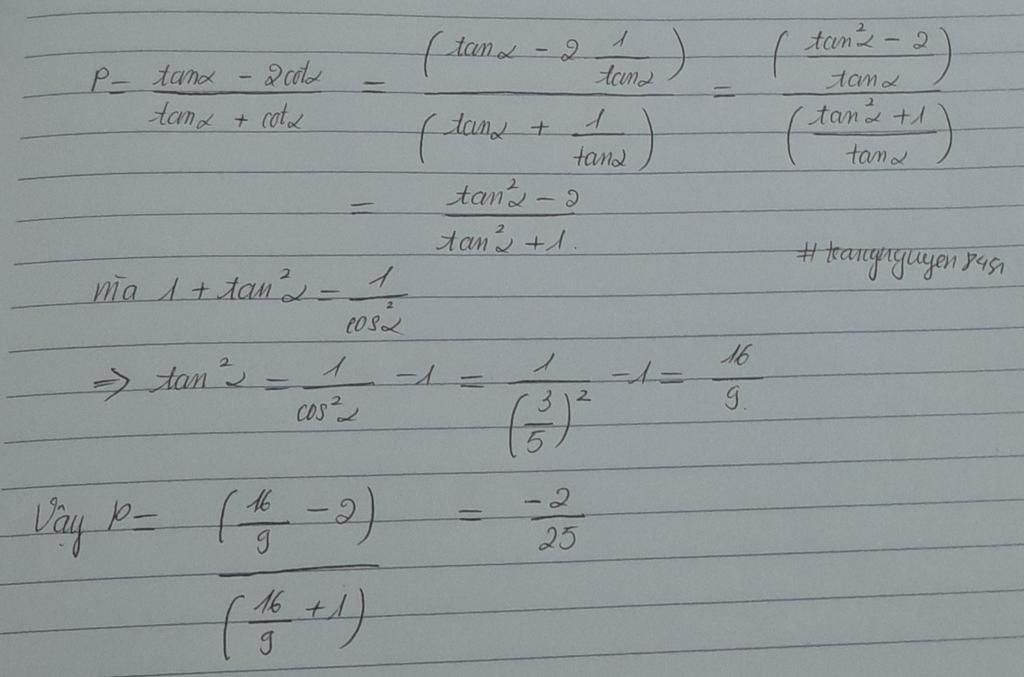 P = \frac{tanα - 2cotα}{tanα + cotα} = \frac{(tanα - 2 \frac{1}{tanα})}{(tanα + \frac{1}{tanα})} = \frac{(\frac{tan²α - 2}{tanα})}{(\frac{tan²α + 1}{tanα})}
= \frac{tan²α - 2}{tan²α + 1}.
mà 1 + tan²α = \frac{1}{cos²α}
⇒ tan²α = \frac{1}{cos²α} - 1 = \frac{1}{(\frac{3}{5})²} - 1 = \frac{16}{9}.
Vậy P = \frac{(\frac{16}{9} - 2)}{(\frac{16}{9} + 1)} = \frac{-2}{25}